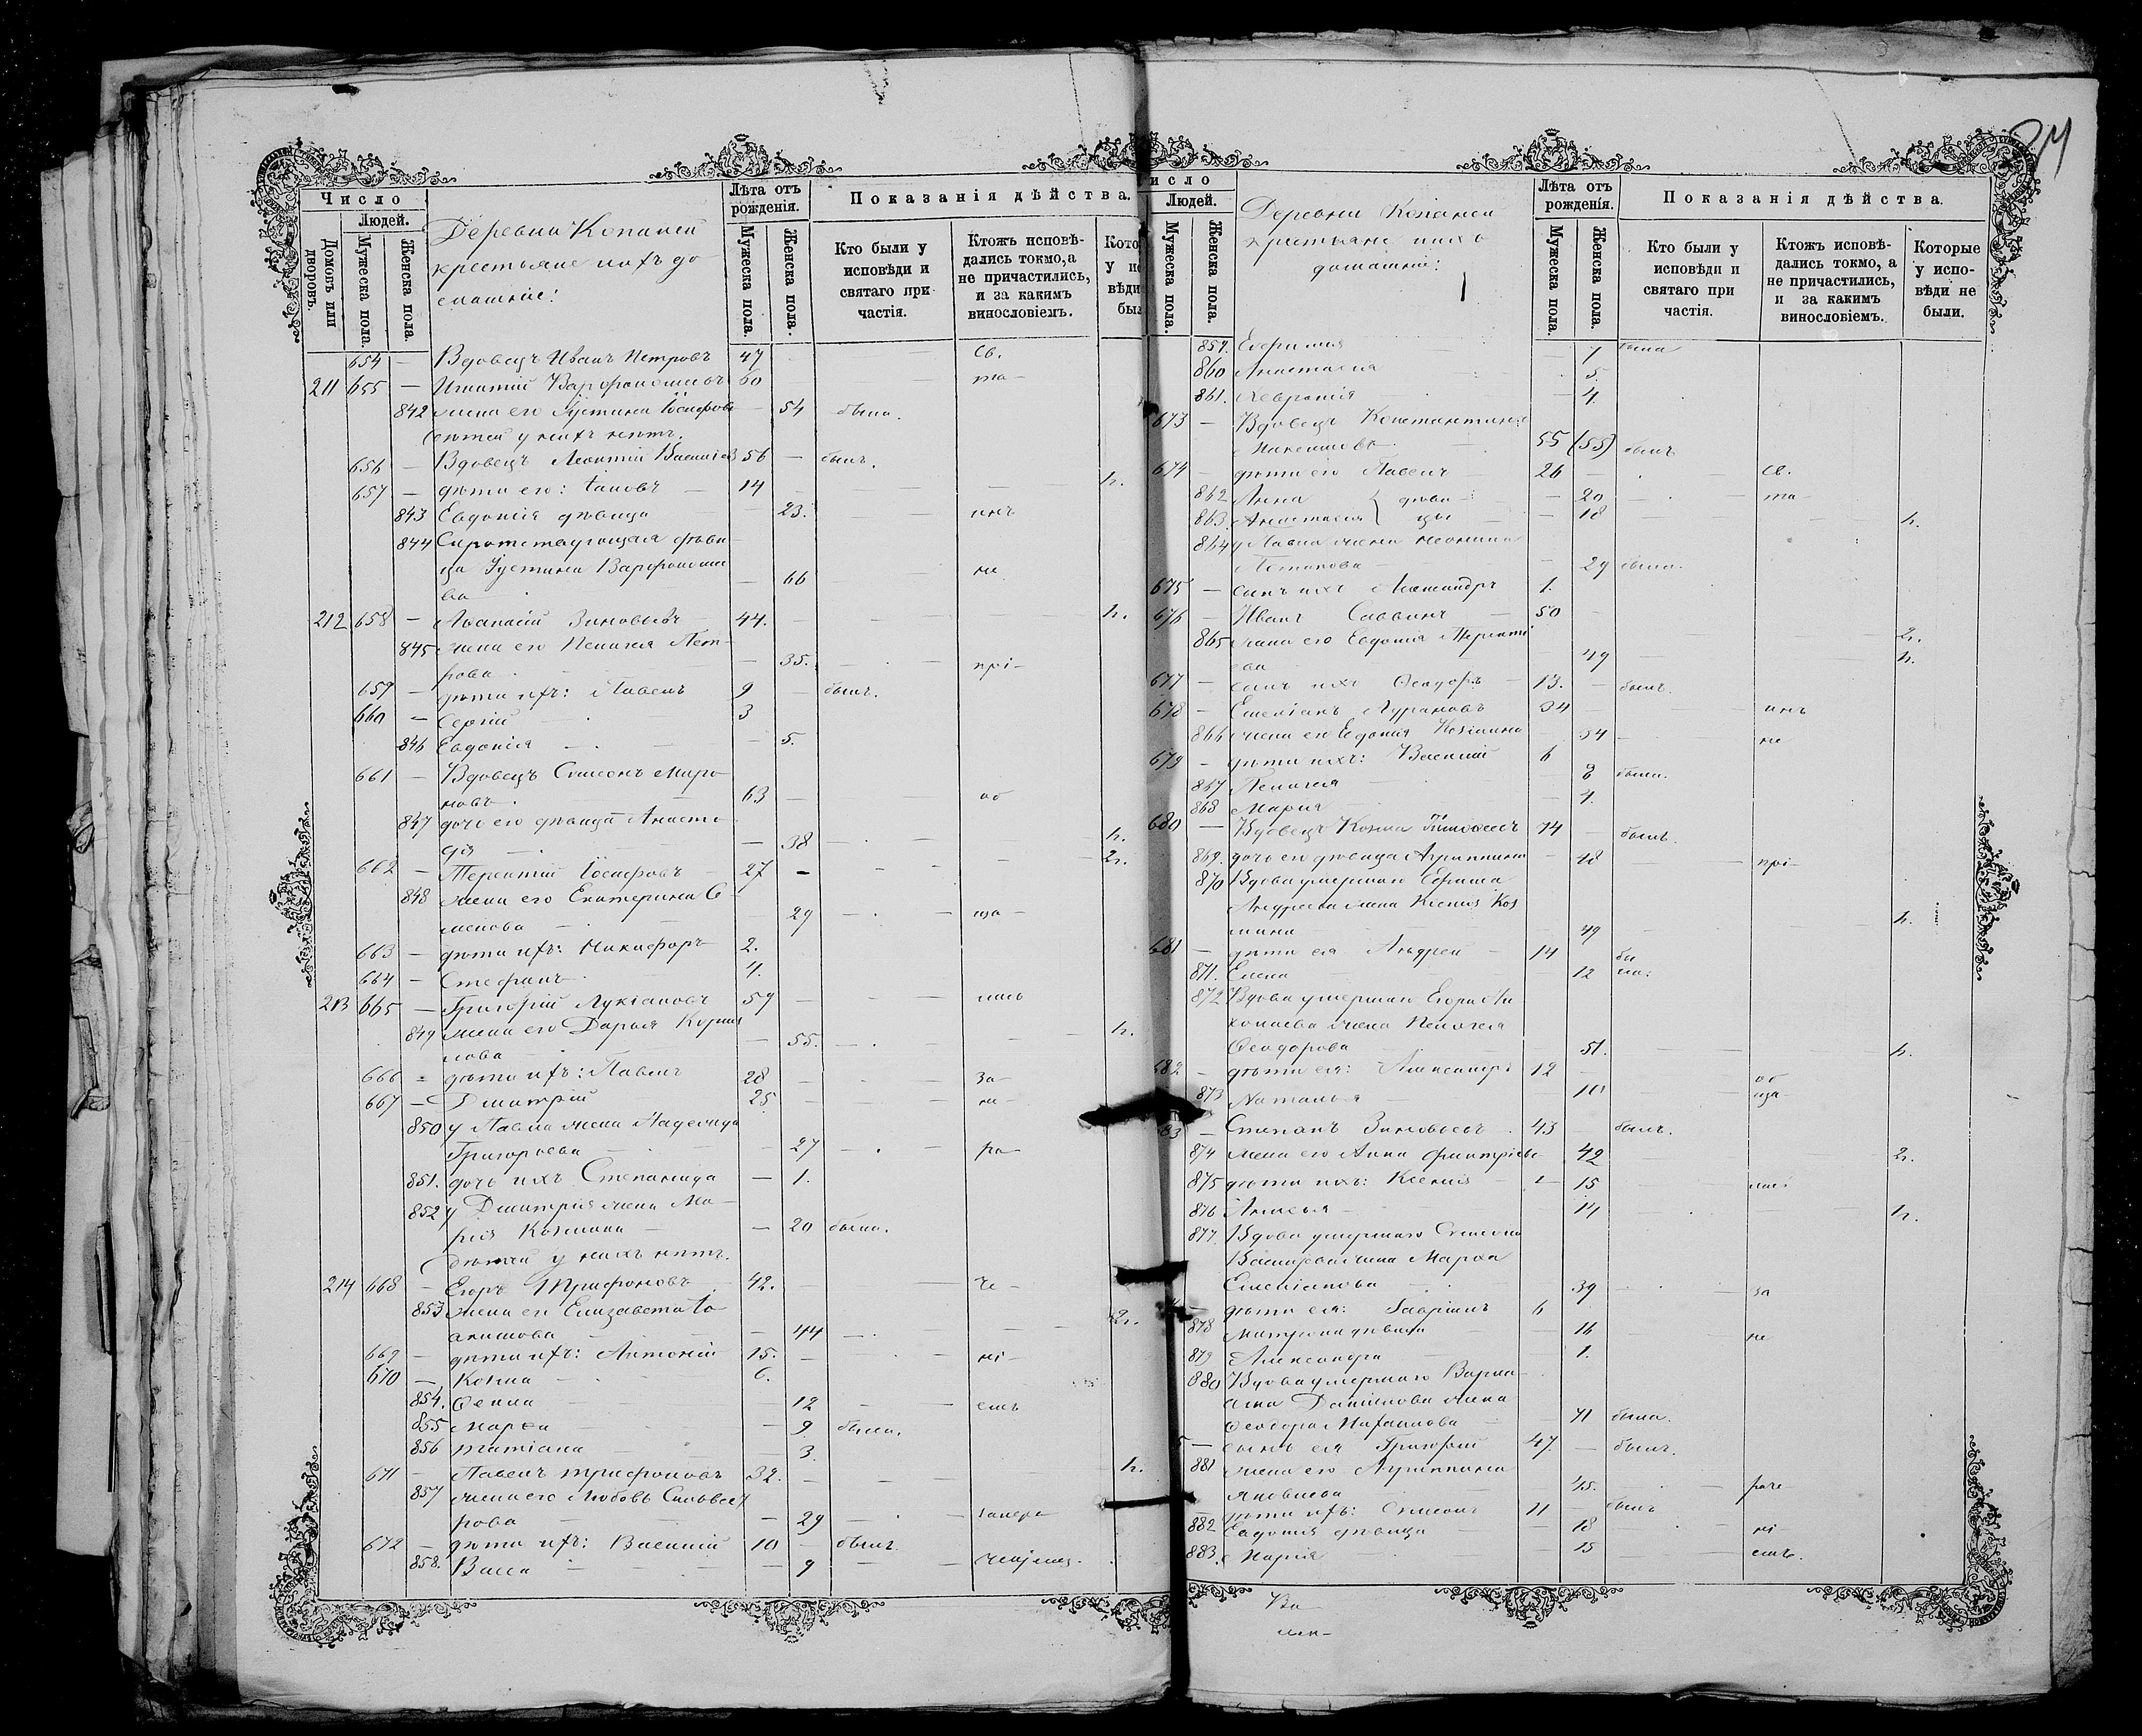 24
Число
Людей.
Домовъ или дворовъ.
Мужеска пола.
Женска пола.
Деревни Копаней
крестьяне и ихъ до
машніе:
Лѣта отъ рожденія.
Мужеска пола.
Женска пола.
Показанія дѣйства.
Кто были у исповѣди и святаго при частія.
Ктожъ исповѣ-дались токмо, а не причастились, и за какимъ винословіемъ.
654 — Вдовецъ Иванъ Петровъ 47 — св.
211 655 — Игнатій Варфоломеевъ 60 — та —
842 жена его Іустина Іосифова — 54 была.
дѣтей у нихъ нѣтъ.
656 — Вдовецъ Леонтій Василіевъ 56 — былъ.
657 — дѣти его: Іаковъ — 14 — н.
843 Евдокія дѣвица — 23. — инъ
844 дѣви
ца Іустина Варфоломее
ва — 66 — не
212 658 — Аѳанасій Зиновьевъ 44. — н.
845 жена его Пелагея Пет-
рова — 35. — прі —
659 — дѣти ихъ: Павелъ 9 — былъ.
660 — Сергій 3
846 Евдокія — 5.
661 — Вдовецъ Симеонъ Миро
новъ. 63 — об
847 дочь его дѣвица Анаста
сія — 38 — н.
662 — Терентій Іосифовъ 27 — 2н.
848 жена его Екатерина Се
менова — 29 — ща —
663 — дѣти ихъ: Никифоръ 2.
664 — Стефанъ 1.
213 665 — Григорій Лукіановъ 59 — лась
849 жена его Дарья Корни
лова — 55. — н.
666 — дѣти ихъ: Павелъ 28 — За —
667 — Дмитрій 25 — не —
850 у Павла жена Надежда
Григорьева — 27 — ра —
851. дочь ихъ Степанида — 1.
852 у Дмитрія жена Ма —
рія Козмина — 20 была.
дѣтей у нихъ нѣтъ.
214 668 — Егоръ Трифоновъ 42. — че —
853 жена его Елизавета Іо
акимова — 44 — 2н.
669 — дѣти ихъ: Антоній 15. — ні —
670 — Козма — 6.
854. Ѳекла 12 — емъ
855 Марѳа — 9 была.
856 Татіана — 3.
671 — Павелъ Трифоновъ 32. — н.
857 жена его Любовь Сильвест
рова — 29
672 — дѣти ихъ: Василій 10 — былъ.
858. Васса — 9
Число
Людей.
Мужеска пола.
Женска пола.
Деревни Копаней
крестьяне и ихъ
домашніе:
Лѣта отъ рожденія.
Мужеска пола.
Женска пола.
Показанія дѣйства.
Кто были у исповѣди и святаго при частія.
Ктожъ исповѣ-дались токмо, а не причастились, и за какимъ винословіемъ.
Которые у испо-вѣди не были.
859. Евфимія — 7 была
860 Анастасія 5.
861. Хевронія 4.
673 — Вдовецъ Константинъ
Максимовъ 55 (55) былъ
674 — дѣти его Павелъ 26 — св.
862 Анна дѣви — 20 — та —
863. Анастасія цы — 18 — н.
864 у Павла жена Неонила
Потапова — 29 была.
675 — сынъ ихъ Александръ 1.
676 — Иванъ Саввинъ 50 — 2н.
865 жена его Евдокія Теренті
ева 49 — н.
677 — сынъ ихъ Ѳеодоръ — 13. — былъ.
678 — Емеліанъ 34 — инъ
866 жена его Евдокія Козмина 34 — не
679 — дѣти ихъ: Василій 6
867 Пелагея 8 была.
868 Марія — 4.
680 — Вдовецъ Козма Тимоѳеевъ 74 — былъ.
869. дочь его дѣвица Агриппина — 18 — прі —
870 Вдова умершаго Ефима
Андреева жена Ксенія Коз
мина 49 — н.
681 — дѣти ея Андрей — 14 бы
871. Елена — 12 ли:
872 Вдова умершаго Егора
жена Пелагея
Ѳеодорова — 51. — н.
682 — дѣти ея: Александръ 12 — об
873 Наталья — 10 ща —
683 — Степанъ Зиновьевъ 43 — былъ.
874 жена его Анна Дмитріева 42 — 2н.
875 дѣти ихъ: Ксенія — 15 лась
876 Анисья — 14 — н.
877. Вдова умершаго Симеона
жена Марѳа
Емеліанова — 39 — за
— дѣти ея: Гавріилъ 6
878 Матрона дѣвица — 16 не
879 Александра — 1.
880 Вдова умершаго Варла
ама Даніилова жена
Ѳеодора Михаилова 71 была.
— сынъ ея Григорій 47. — былъ.
881 жена его Агриппина
Яковлева 45. — раче
дѣти ихъ: Симеонъ 11 — былъ
882 Евдокія дѣвица — 18 — ні —
883. Марія — 15 — емъ.
Ва